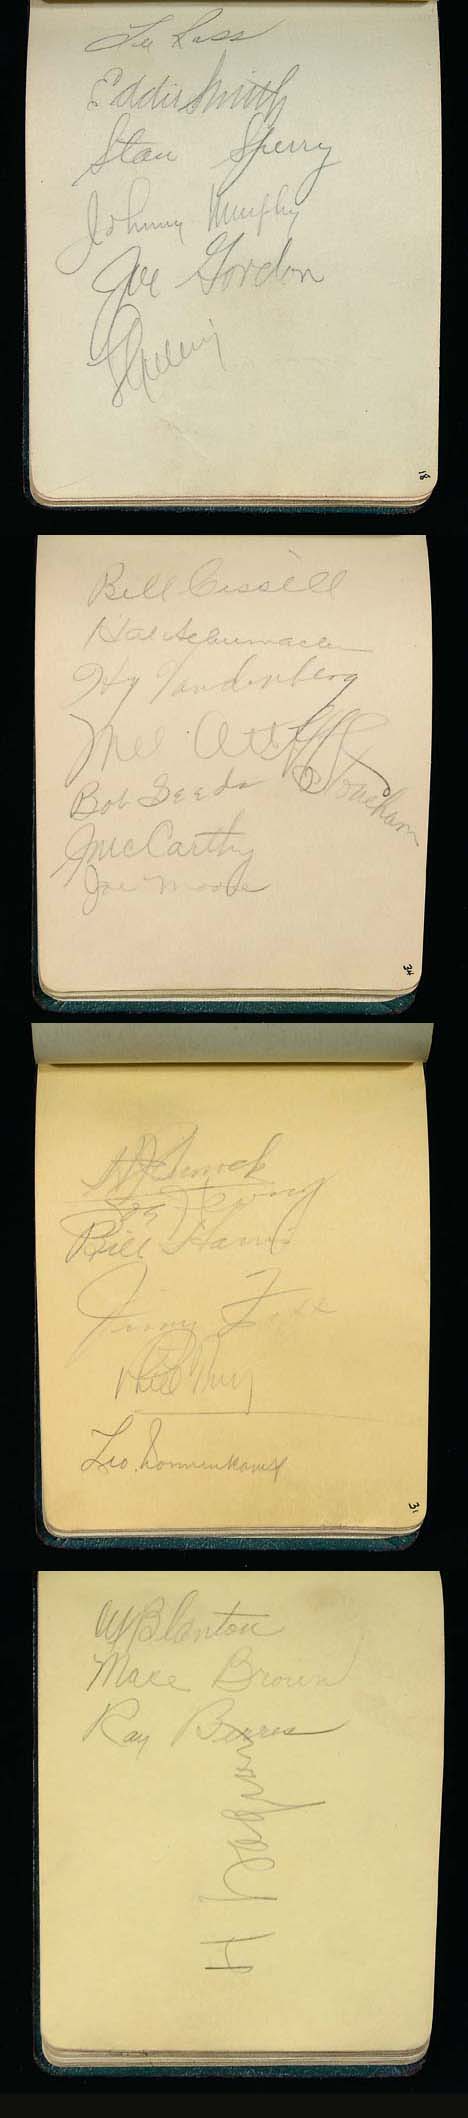 Lee Ross
Eddie Smith
Stan Sperry
Johnny Murphy
Joe Gordon
18
Bill Cissell
Hal Schumacher
Hy Vandenberg
Mel Ott
Bob Seeds
Stoneham
J McCarthy
Joe Moore
34
Joe Heving
Bill Harris
Jimmy Foxx
Leo Nonnenkamp
31
Blanton
Mace Brown
Ray Berres
H